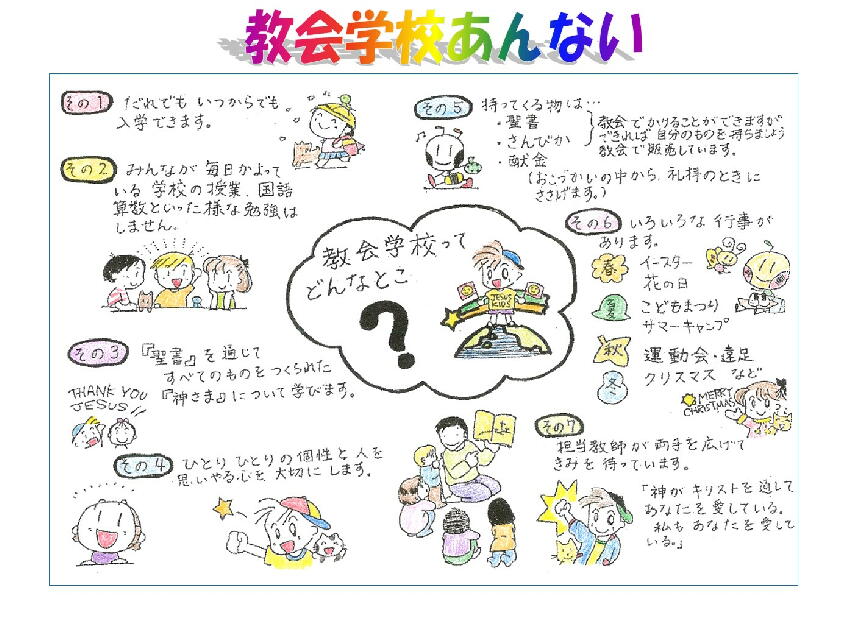 教会学校あんない
その1 だれでも いつからでも
入学できます。
その2 みんなが 毎日かよって
いる 学校の授業、国語
算数といった様な勉強は
しません。
教会学校って
どんなとこ
?
JESUS
KIDS
その3 『聖書』を通じて
すべてのものをつくられた
『神さま』について学びます。
THANK YOU
JESUS!!
その4 ひとり ひとりの個性と人を
思いやる心を 大切に します。
その5 持ってくる物は…
・聖書
・さんびか
・献金
教会でかりることができますが
できれば自分のものを持ちましょう
教会で販売しています。
(おこづかいの中から 礼拝のときに
ささげます。)
その6 いろいろな 行事が
あります。
春 イースター
花の日
夏 こどもまつり
サマーキャンプ
秋 運動会・遠足
冬 クリスマス など
MERRY
CHRISTMAS
その7
担当教師が両手を広げて
きみを 待っています。
「神が キリストを通して
あなたを愛している。
私も あなたを愛して
いる。」